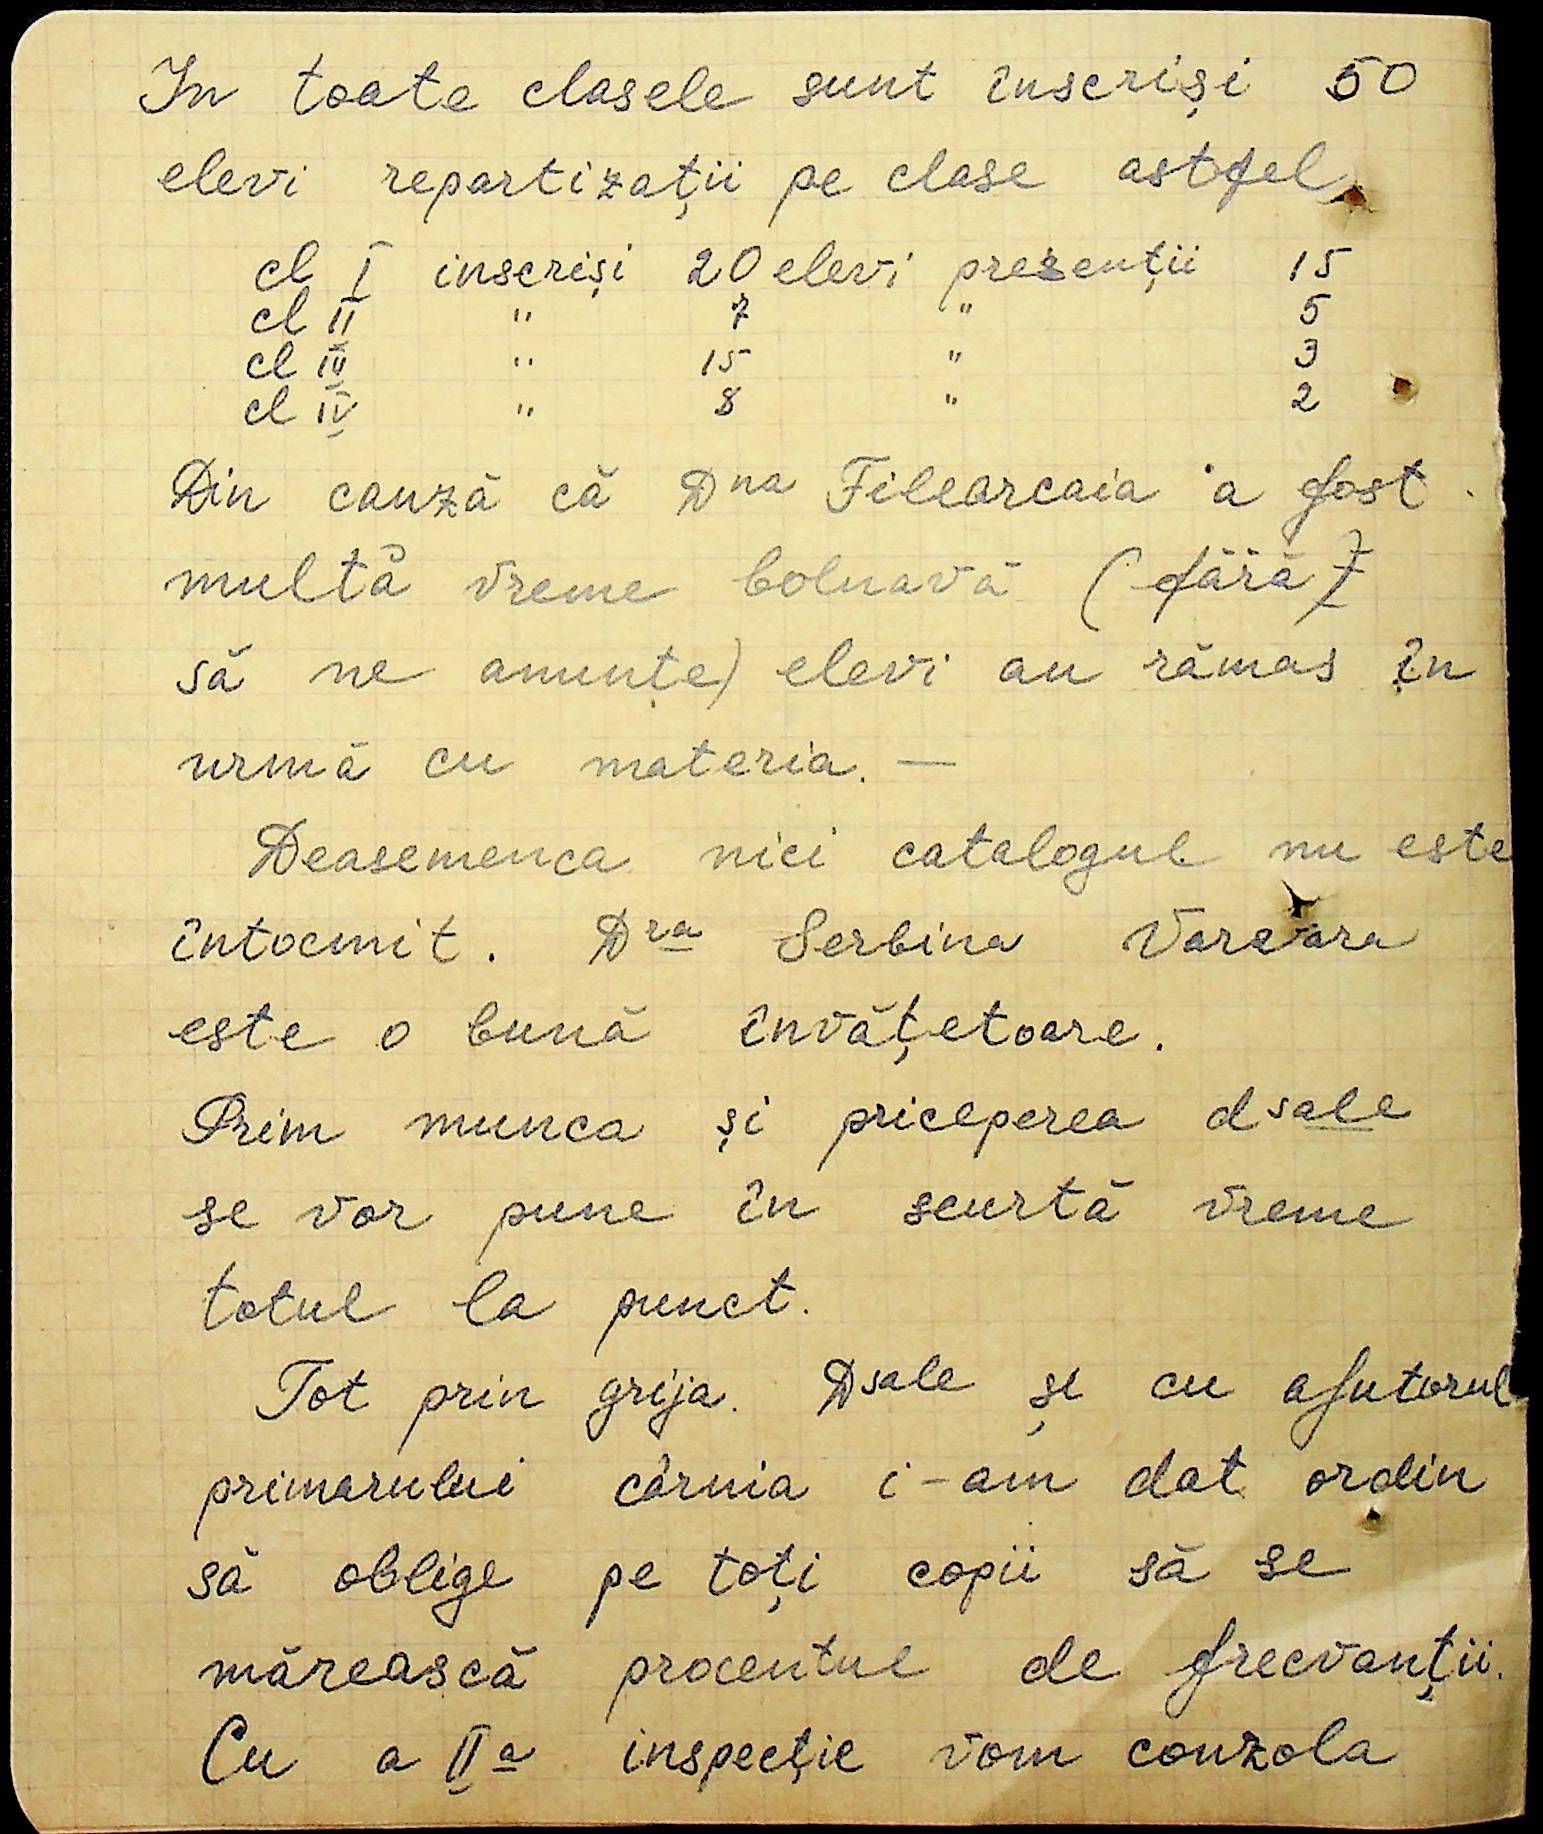 In toate clasele sunt înscriși 50
elevi repartizații pe clase astfel
cl I inscriși 20 elevi prezenții 15
cl II " 7 " 5
cl III " 15 " 3
cl IV " 8 " 2
Din cauză că Dna Filearcaia a fost
multă vreme bolnavă (fără)
să ne anunțe) elevi au rămas în
urmă cu materia. —
Deasemenea nici catalogul nu este
întocmit. Dra Serbina Varvara
este o bună învățetoare.
Prim munca și priceperea dsale
se vor pune în scurtă vreme
totul la punct.
Tot prin grija Dsale și cu ajutorul
primarului cârnia i-am dat ordin
să oblige pe toți copii să se
mărească procentul de frecvanții.
Cu a IIa inspecție vom conzola